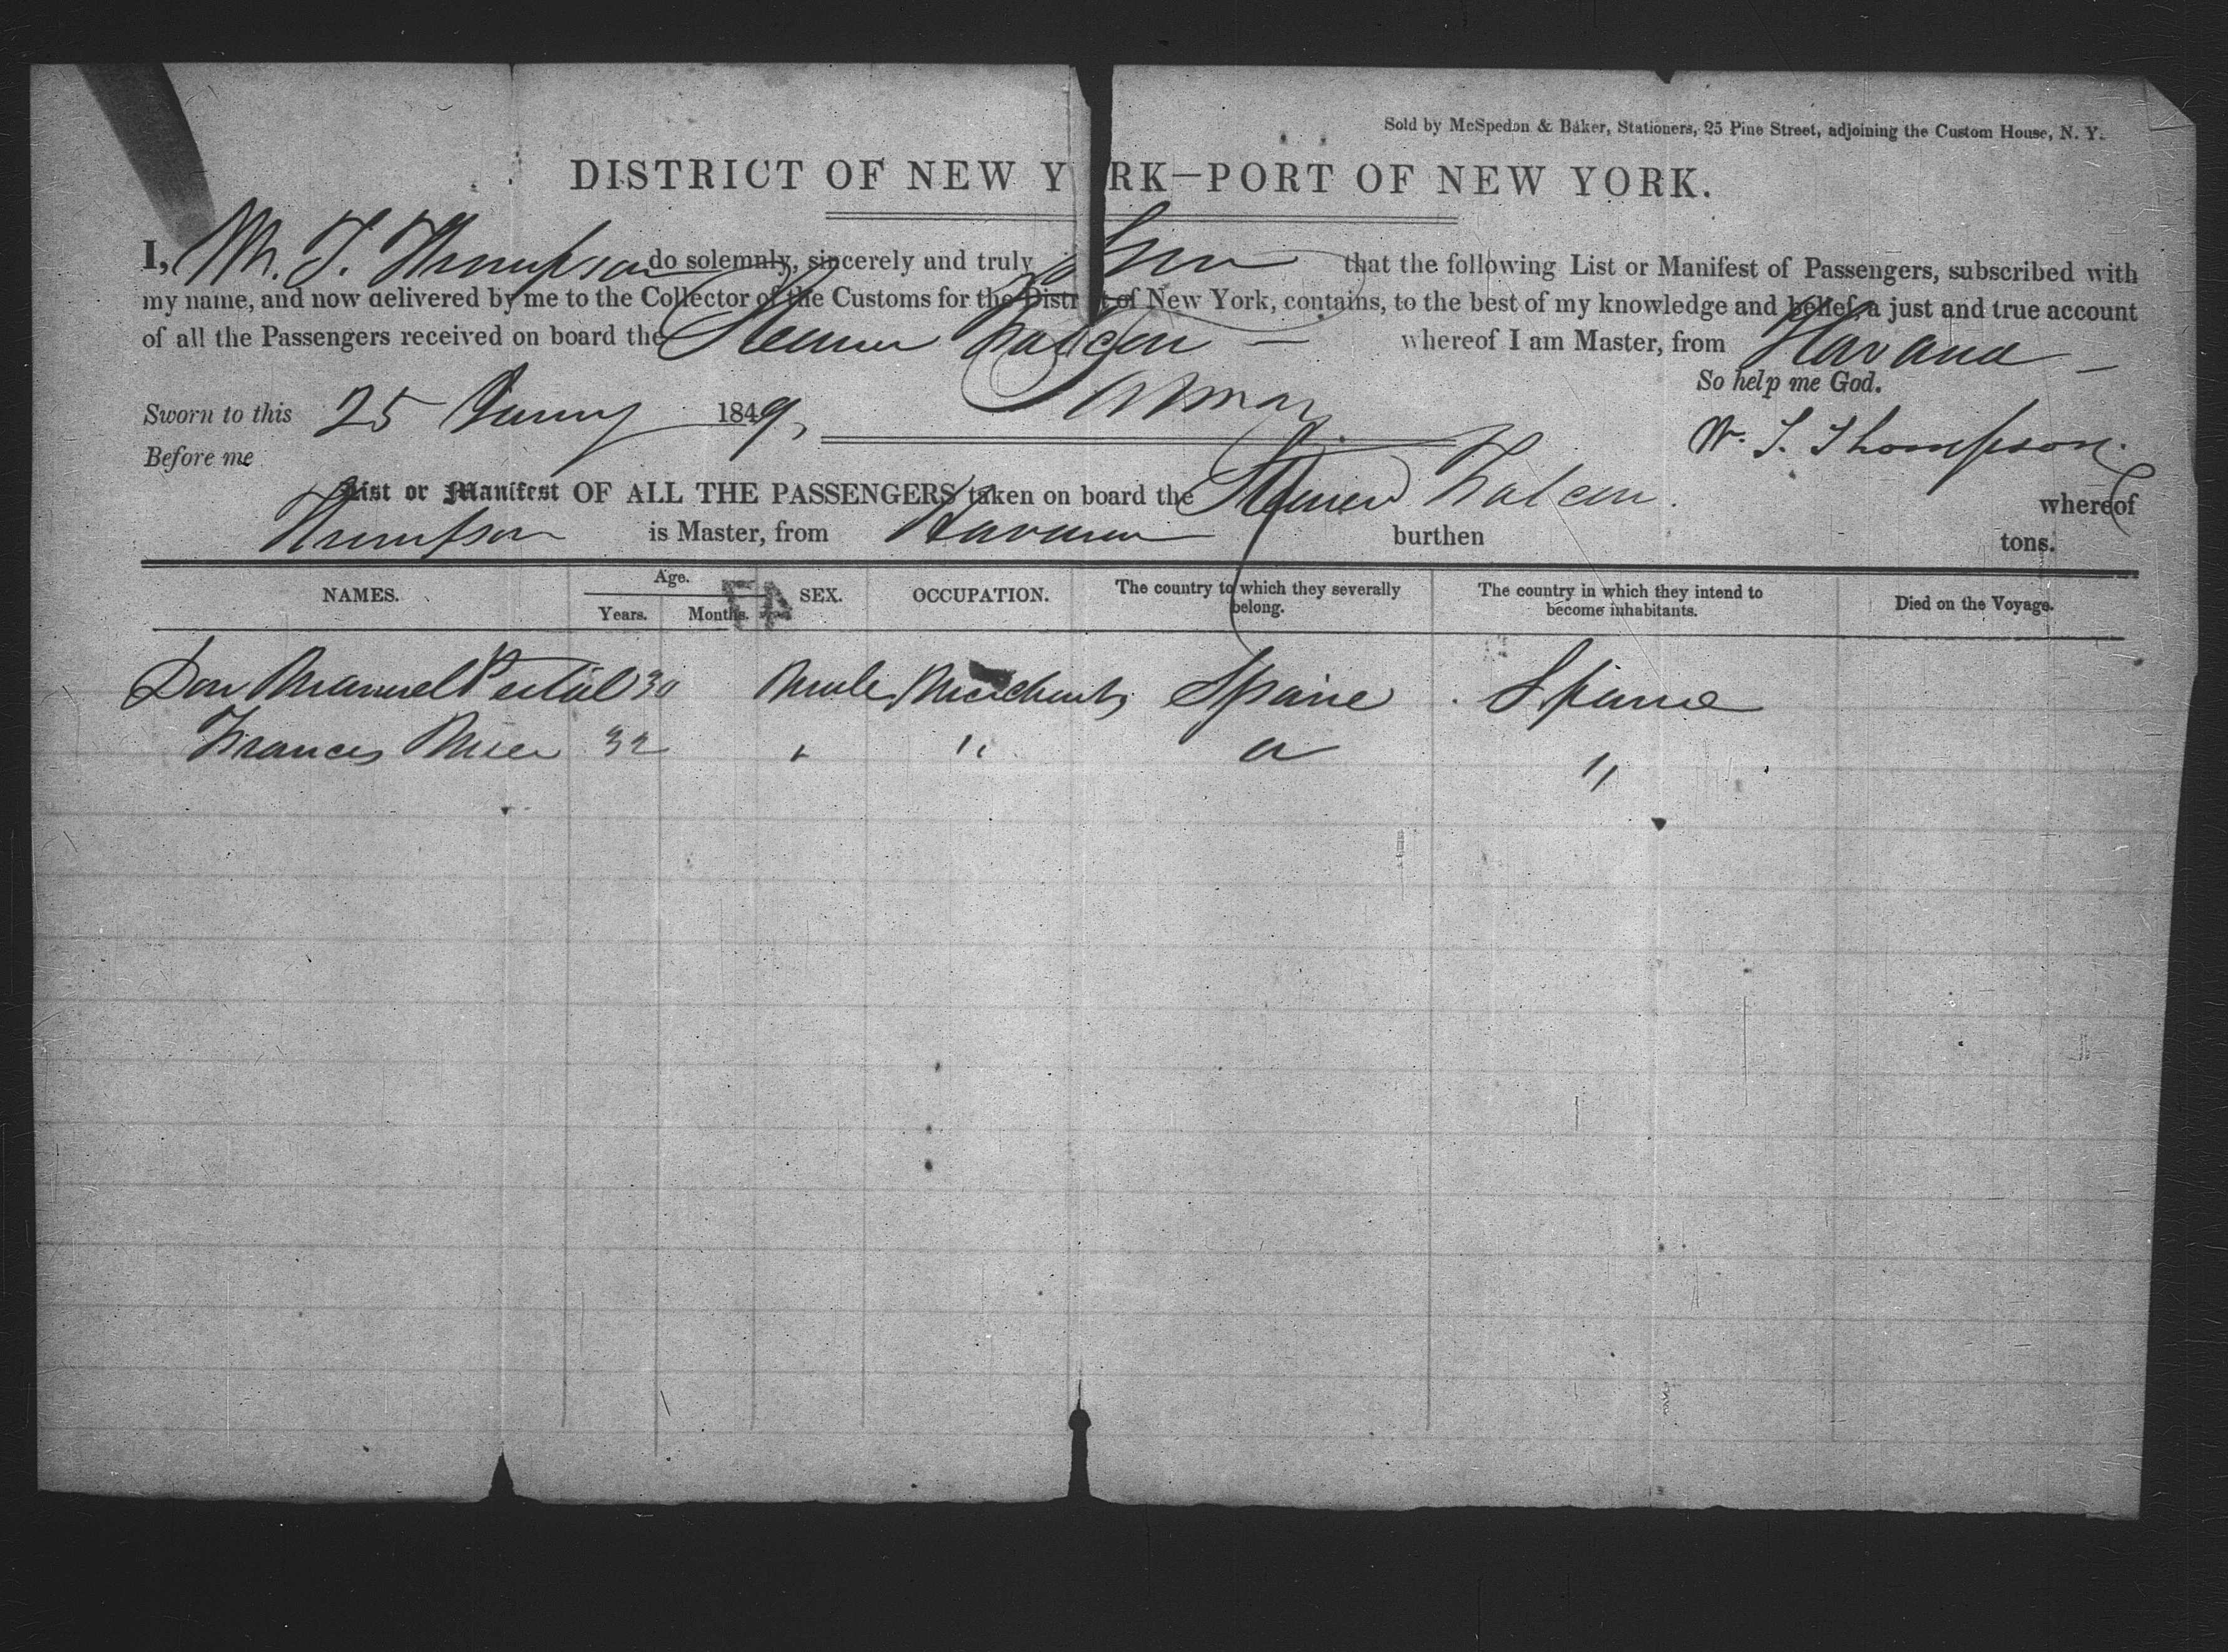 Sold by McSpedon & Baker, Stationers, 25 Pine Street, adjoining the Custom House, N. Y.
DISTRICT OF NEW Y RK—PORT OF NEW YORK.
I, W. T. Thompson do solemnly, sincerely and truly that the following List or Manifest of Passengers, subscribed with
my name, and now delivered by me to the Collector of the Customs for the District of New York, contains, to the best of my knowledge and belief, a just and true account
of all the Passengers received on board the Steamer Falcon — whereof I am Master, from Havana —
So help me God.
Sworn to this 25 Jany 1849,
W. T. Thompson.
Before me
List or Manifest OF ALL THE PASSENGERS taken on board the Steamer Falcon. whereof
Thompson is Master, from Havana burthen tons.
NAMES. Age. SEX. OCCUPATION. The country to which they severally belong. The country in which they intend to become inhabitants. Died on the Voyage.
Years. Months.
Don Manuel 30 Male Merchants Spain Spain
Frances 32 " " " "